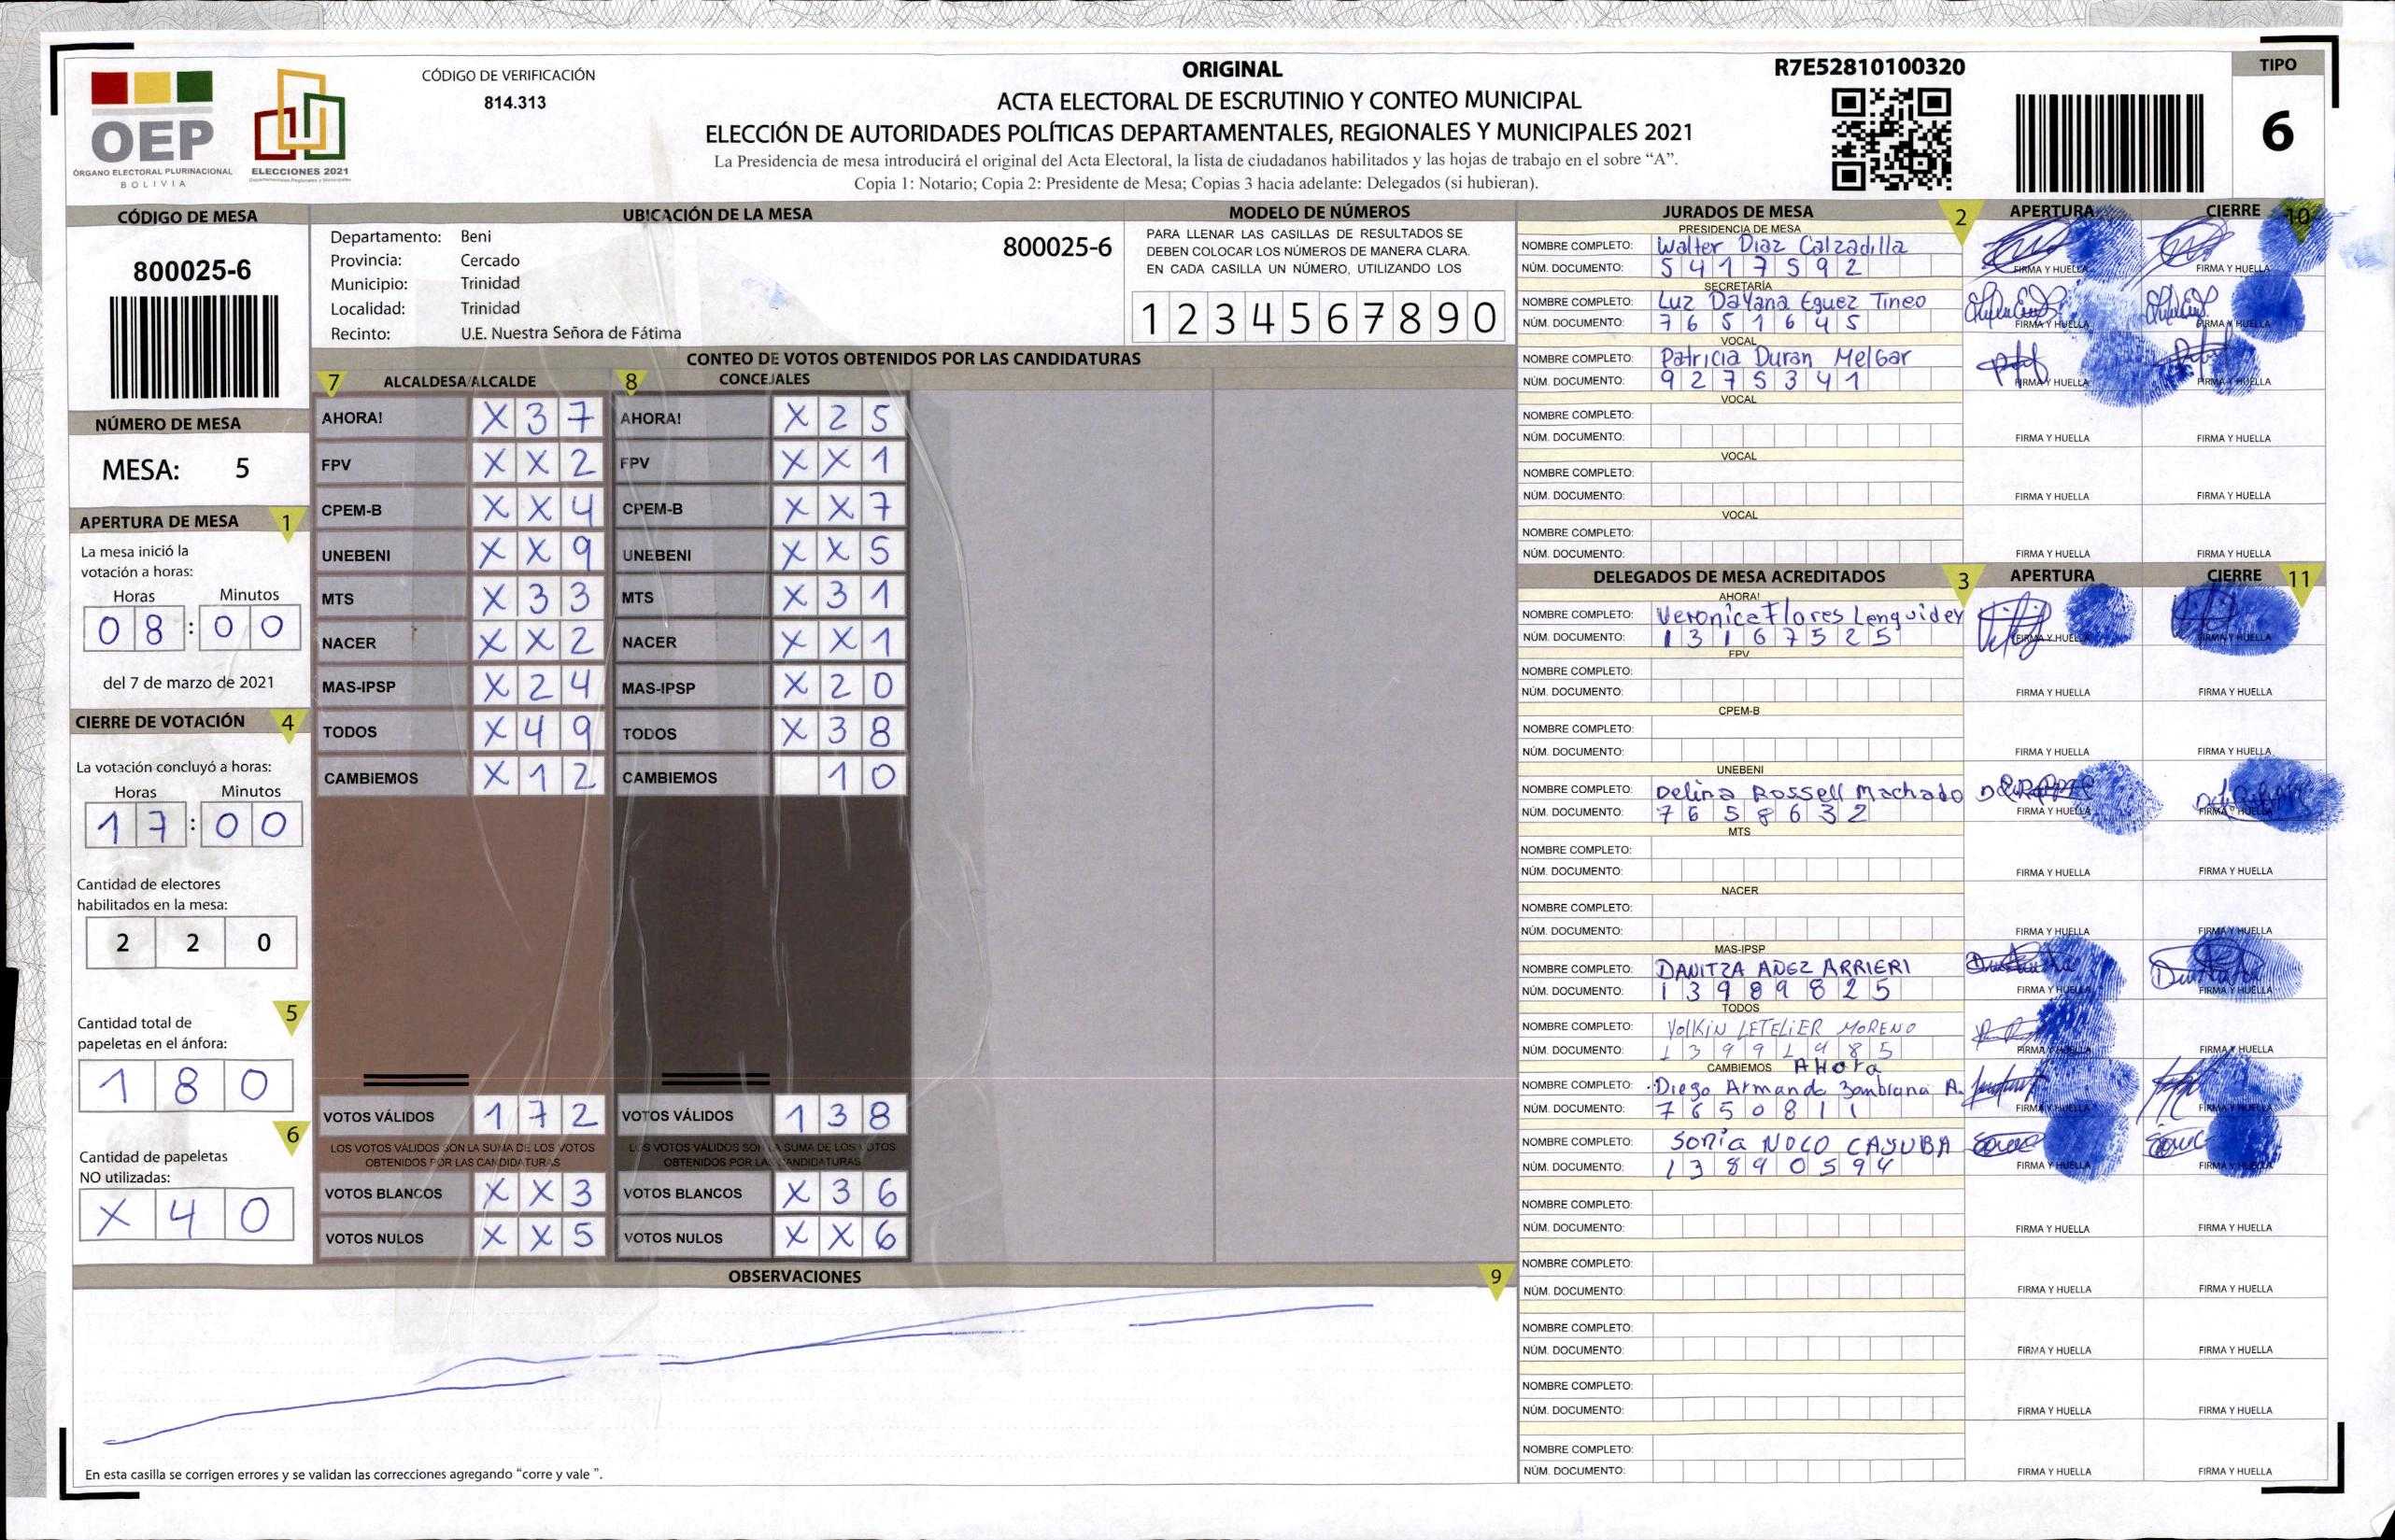 OEP
ÓRGANO ELECTORAL PLURINACIONAL
BOLIVIA
ELECCIONES 2021
CÓDIGO DE VERIFICACIÓN
814.313
ORIGINAL
ACTA ELECTORAL DE ESCRUTINIO Y CONTEO MUNICIPAL
ELECCIÓN DE AUTORIDADES POLÍTICAS DEPARTAMENTALES, REGIONALES Y MUNICIPALES 2021
La Presidencia de mesa introducirá el original del Acta Electoral, la lista de ciudadanos habilitados y las hojas de trabajo en el sobre “A”.
Copia 1: Notario; Copia 2: Presidente de Mesa; Copias 3 hacia adelante: Delegados (si hubieran).
R7E52810100320
TIPO
6
CÓDIGO DE MESA
800025-6
NÚMERO DE MESA
MESA: 5
APERTURA DE MESA 1
La mesa inició la
votación a horas:
Horas Minutos
08:00
del 7 de marzo de 2021
CIERRE DE VOTACIÓN 4
La votación concluyó a horas:
Horas Minutos
17:00
Cantidad de electores
habilitados en la mesa:
2 2 0
5
Cantidad total de
papeletas en el ánfora:
1 8 0
6
Cantidad de papeletas
NO utilizadas:
X 4 0
UBICACIÓN DE LA MESA
Departamento: Beni
Provincia: Cercado
Municipio: Trinidad
Localidad: Trinidad
Recinto: U.E. Nuestra Señora de Fátima
800025-6
MODELO DE NÚMEROS
PARA LLENAR LAS CASILLAS DE RESULTADOS SE
DEBEN COLOCAR LOS NÚMEROS DE MANERA CLARA.
EN CADA CASILLA UN NÚMERO, UTILIZANDO LOS
1 2 3 4 5 6 7 8 9 0
CONTEO DE VOTOS OBTENIDOS POR LAS CANDIDATURAS
7 ALCALDESA/ALCALDE 8 CONCEJALES
AHORA! X 3 7 AHORA! X 2 5
FPV X X 2 FPV X X 1
CPEM-B X X 4 CPEM-B X X 7
UNEBENI X X 9 UNEBENI X X 5
MTS X 3 3 MTS X 3 1
NACER X X 2 NACER X X 1
MAS-IPSP X 2 4 MAS-IPSP X 2 0
TODOS X 4 9 TODOS X 3 8
CAMBIEMOS X 1 2 CAMBIEMOS 1 0
VOTOS VÁLIDOS 1 7 2 VOTOS VÁLIDOS 1 3 8
LOS VOTOS VÁLIDOS SON LA SUMA DE LOS VOTOS LOS VOTOS VÁLIDOS SON LA SUMA DE LOS VOTOS
OBTENIDOS POR LAS CANDIDATURAS OBTENIDOS POR LAS CANDIDATURAS
VOTOS BLANCOS X X 3 VOTOS BLANCOS X 3 6
VOTOS NULOS X X 5 VOTOS NULOS X X 6
OBSERVACIONES 9
En esta casilla se corrigen errores y se validan las correcciones agregando “corre y vale ”.
JURADOS DE MESA 2 APERTURA CIERRE 10
PRESIDENCIA DE MESA
NOMBRE COMPLETO: Walter Diaz Calzadilla
NÚM. DOCUMENTO: 5417592 FIRMA Y HUELLA FIRMA Y HUELLA
SECRETARÍA
NOMBRE COMPLETO: Luz Dayana Eguez Tineo
NÚM. DOCUMENTO: 7651645 FIRMA Y HUELLA FIRMA Y HUELLA
VOCAL
NOMBRE COMPLETO: Patricia Duran Melgar
NÚM. DOCUMENTO: 9275341 FIRMA Y HUELLA FIRMA Y HUELLA
VOCAL
NOMBRE COMPLETO:
NÚM. DOCUMENTO: FIRMA Y HUELLA FIRMA Y HUELLA
VOCAL
NOMBRE COMPLETO:
NÚM. DOCUMENTO: FIRMA Y HUELLA FIRMA Y HUELLA
VOCAL
NOMBRE COMPLETO:
NÚM. DOCUMENTO: FIRMA Y HUELLA FIRMA Y HUELLA
DELEGADOS DE MESA ACREDITADOS 3 APERTURA CIERRE 11
AHORA!
NOMBRE COMPLETO: Veronica Flores Lenguidey
NÚM. DOCUMENTO: 13167525 FIRMA Y HUELLA FIRMA Y HUELLA
FPV
NOMBRE COMPLETO:
NÚM. DOCUMENTO: FIRMA Y HUELLA FIRMA Y HUELLA
CPEM-B
NOMBRE COMPLETO:
NÚM. DOCUMENTO: FIRMA Y HUELLA FIRMA Y HUELLA
UNEBENI
NOMBRE COMPLETO: Delina Rossell Machado
NÚM. DOCUMENTO: 7658632 FIRMA Y HUELLA FIRMA Y HUELLA
MTS
NOMBRE COMPLETO:
NÚM. DOCUMENTO: FIRMA Y HUELLA FIRMA Y HUELLA
NACER
NOMBRE COMPLETO:
NÚM. DOCUMENTO: FIRMA Y HUELLA FIRMA Y HUELLA
MAS-IPSP
NOMBRE COMPLETO: DANITZA AÑEZ ARRIERI
NÚM. DOCUMENTO: 13989825 FIRMA Y HUELLA FIRMA Y HUELLA
TODOS
NOMBRE COMPLETO: YOLKIN LETELIER MORENO
NÚM. DOCUMENTO: 13991985 FIRMA Y HUELLA FIRMA Y HUELLA
CAMBIEMOS AHora
NOMBRE COMPLETO: Diego Armando Zambrana A.
NÚM. DOCUMENTO: 7650811 FIRMA Y HUELLA FIRMA Y HUELLA
NOMBRE COMPLETO: Sonia NOCO CAYUBA
NÚM. DOCUMENTO: 13890594 FIRMA Y HUELLA FIRMA Y HUELLA
NOMBRE COMPLETO:
NÚM. DOCUMENTO: FIRMA Y HUELLA FIRMA Y HUELLA
NOMBRE COMPLETO:
NÚM. DOCUMENTO: FIRMA Y HUELLA FIRMA Y HUELLA
NOMBRE COMPLETO:
NÚM. DOCUMENTO: FIRMA Y HUELLA FIRMA Y HUELLA
NOMBRE COMPLETO:
NÚM. DOCUMENTO: FIRMA Y HUELLA FIRMA Y HUELLA
NOMBRE COMPLETO:
NÚM. DOCUMENTO: FIRMA Y HUELLA FIRMA Y HUELLA